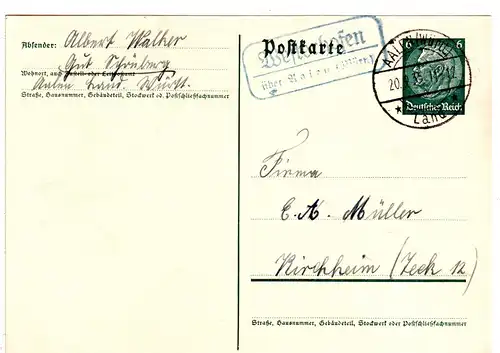 Absender: Albert Walker
Gut Schönberg
Wohnort, auch Zustell- oder Leitpostamt
Aalen Land. Württ.
Straße, Hausnummer, Gebäudeteil, Stockwerk od. Postschließfachnummer
Postkarte
Westerhofen
über Aalen (Württ.)
AALEN (WÜRTT)
20.
Land
6
6
Deutsches Reich
Firma
E. A. Müller
Kirchheim (Teck 12)
Straße, Hausnummer, Gebäudeteil, Stockwerk oder Postschließfachnummer